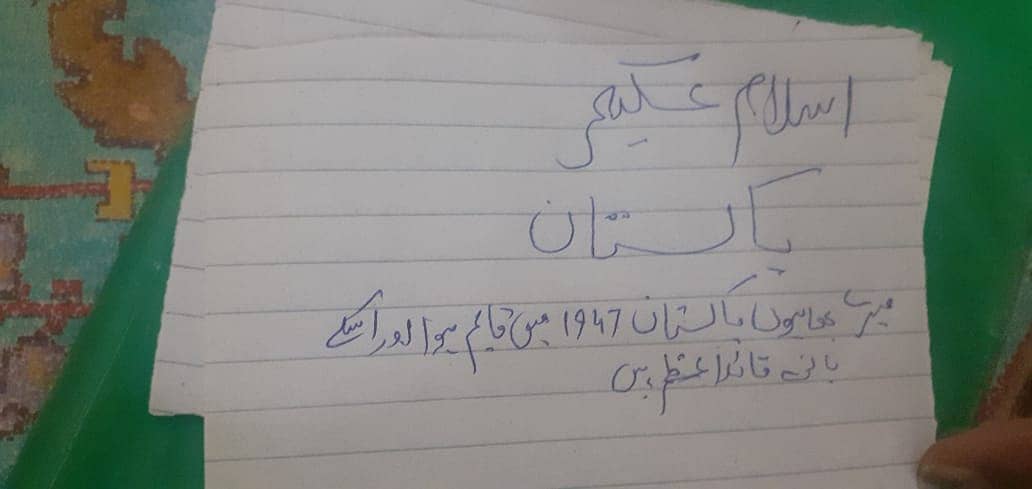 اسلام علیکم
پاکستان
میرے بھائیوں پاکستان 1947 میں قایٔم ہوا اور اسکے
بانی قائداعظم ہیں